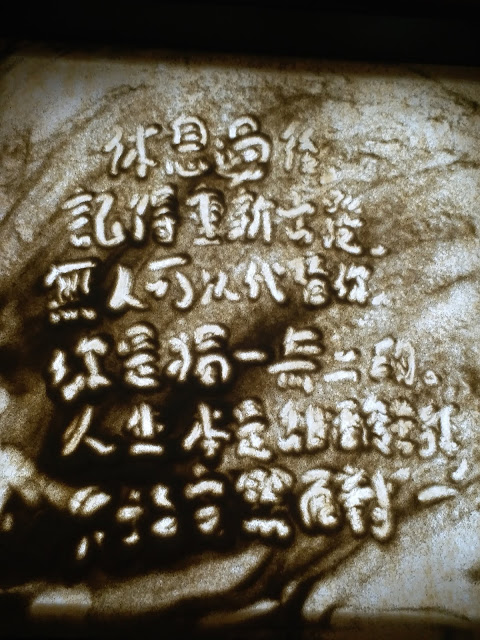 休息過後
記得重新出發.
無人可以代替你.
你是獨一无二的。
人生本是
然面對一